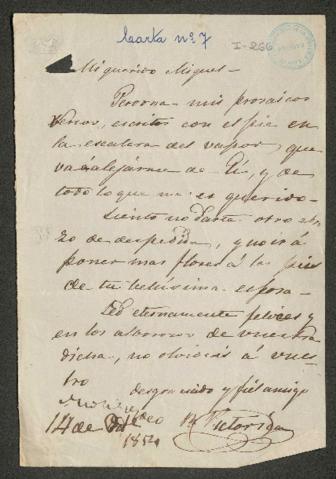 Carta nº 7
I-266
Mi querido Miguel-
Perdona mis prosaicos
versos, escritos con el pie en
la escalera del vapor que
va á alejarme de Tí, y de
todo lo que me es querido-
Siento no darte otro abra
zo de despedida, y no irá
poner mas flores á los pies
de tu bellísima esposa-
Sed eternamente felices y
en los alborozos de vuestra
dicha, no olvideis á vues
tro
desgraciado y fiel amigo
14 de
185